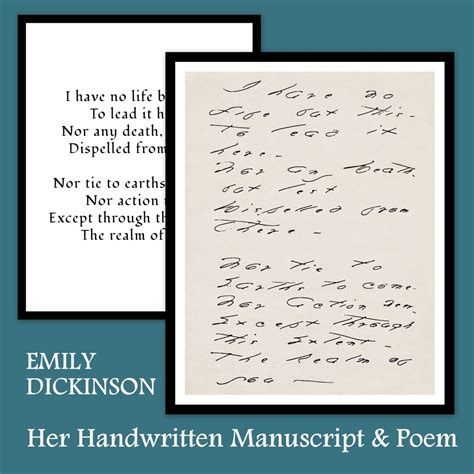 I have no life b
To lead it h
Nor any death,
Dispelled from
Nor tie to earths
Nor action
Except through th
The realm of
I have no
Life but this -
To lead it
here -
Nor any Death -
but lest
Dispelled from
there -
Nor tie to
Earths to come -
Nor Action new
Except through
this Extent -
The Realm of
you —
EMILY
DICKINSON
Her Handwritten Manuscript & Poem